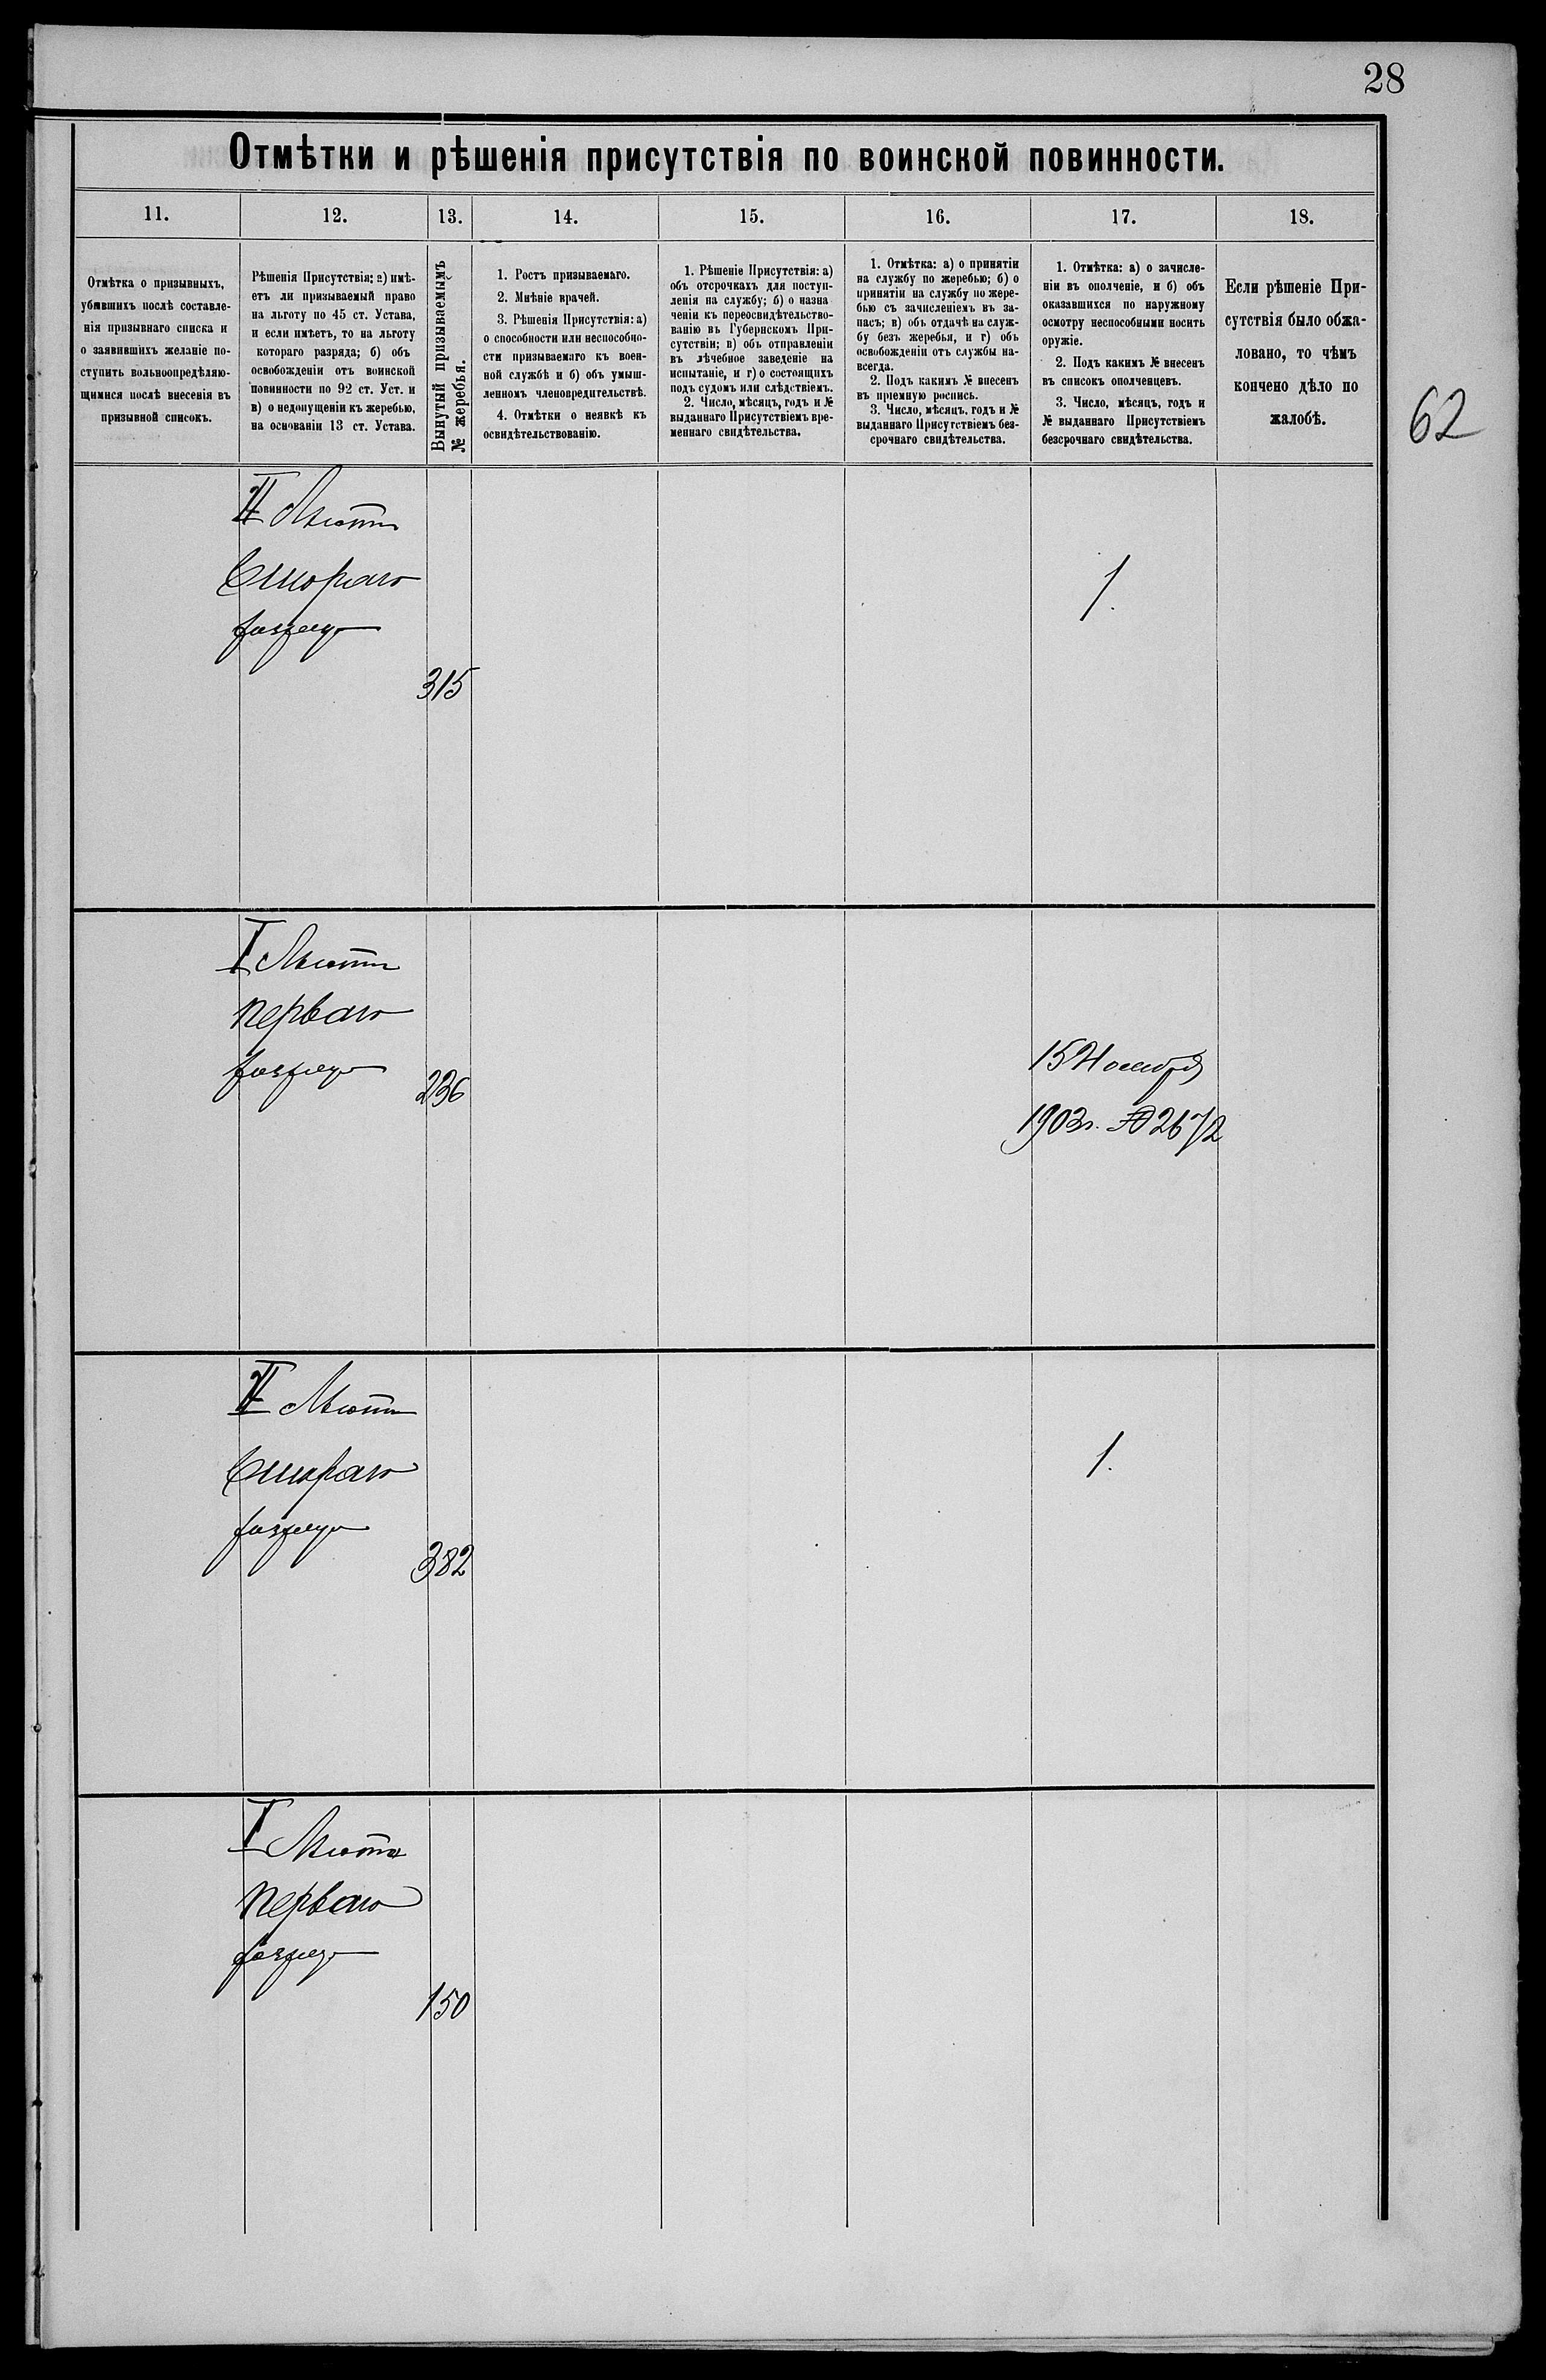 28
Отмѣтки и рѣшенія присутствія по воинской повинности.
11. 12. 13. 14. 15. 16. 17. 18.
Отмѣтка о призывныхъ,
убывшихъ послѣ составле-
нія призывнаго списка и
о заявившихъ желаніе по-
ступить вольноопредѣляю-
щимися послѣ внесенія въ
призывной списокъ.
Рѣшенія Присутствія: а) имѣ-
етъ ли призываемый право
на льготу по 45 ст. Устава,
и если имѣетъ, то на льготу
котораго разряда; б) объ
освобожденіи отъ воинской
повинности по 92 ст. Уст. и
в) о недопущеніи къ жеребью,
на основаніи 13 ст. Устава.
Вынутый призываемымъ
№ жеребья.
1. Ростъ призываемаго.
2. Мнѣніе врачей.
3. Рѣшенія Присутствія: а)
о способности или неспособно-
сти призываемаго къ воен-
ной службѣ и б) объ умыш-
ленномъ членовредительствѣ.
4. Отмѣтки о неявкѣ къ
освидѣтельствованію.
1. Рѣшеніе Присутствія: а)
объ отсрочкахъ для поступ-
ленія на службу; б) о назна
ченіи къ переосвидѣтельство-
ванію въ Губернскомъ При-
сутствіи; в) объ отправленіи
въ лѣчебное заведеніе на
испытаніе, и г) о состоящихъ
подъ судомъ или слѣдствіемъ.
2. Число, мѣсяцъ, годъ и №
выданнаго Присутствіемъ вре-
меннаго свидѣтельства.
1. Отмѣтка: а) о принятіи
на службу по жеребью; б) о
принятіи на службу по жере-
бью съ зачисленіемъ въ за-
пасъ; в) объ отдачѣ на служ-
бу безъ жеребья, и г) объ
освобожденіи отъ службы на-
всегда.
2. Подъ какимъ № внесенъ
въ пріемную роспись.
3. Число, мѣсяцъ, годъ и №
выданнаго Присутствіемъ без-
срочнаго свидѣтельства.
1. Отмѣтка: а) о зачисле-
ніи въ ополченіе, и б) объ
оказавшихся по наружному
осмотру неспособными носить
оружіе.
2. Подъ какимъ № внесенъ
въ списокъ ополченцевъ.
3. Число, мѣсяцъ, годъ и
№ выданнаго Присутствіемъ
безсрочнаго свидѣтельства.
Если рѣшеніе При-
сутствія было обжа-
ловано, то чѣмъ
кончено дѣло по
жалобѣ.
62
II Льготн
Второго
разряда
315
1.
I Льготн
перваго
разряда
236
15 Ноября
1903 г. № 2672
II Льготн
Второго
разряда
382
1.
I Льготн
перваго
разряда
150